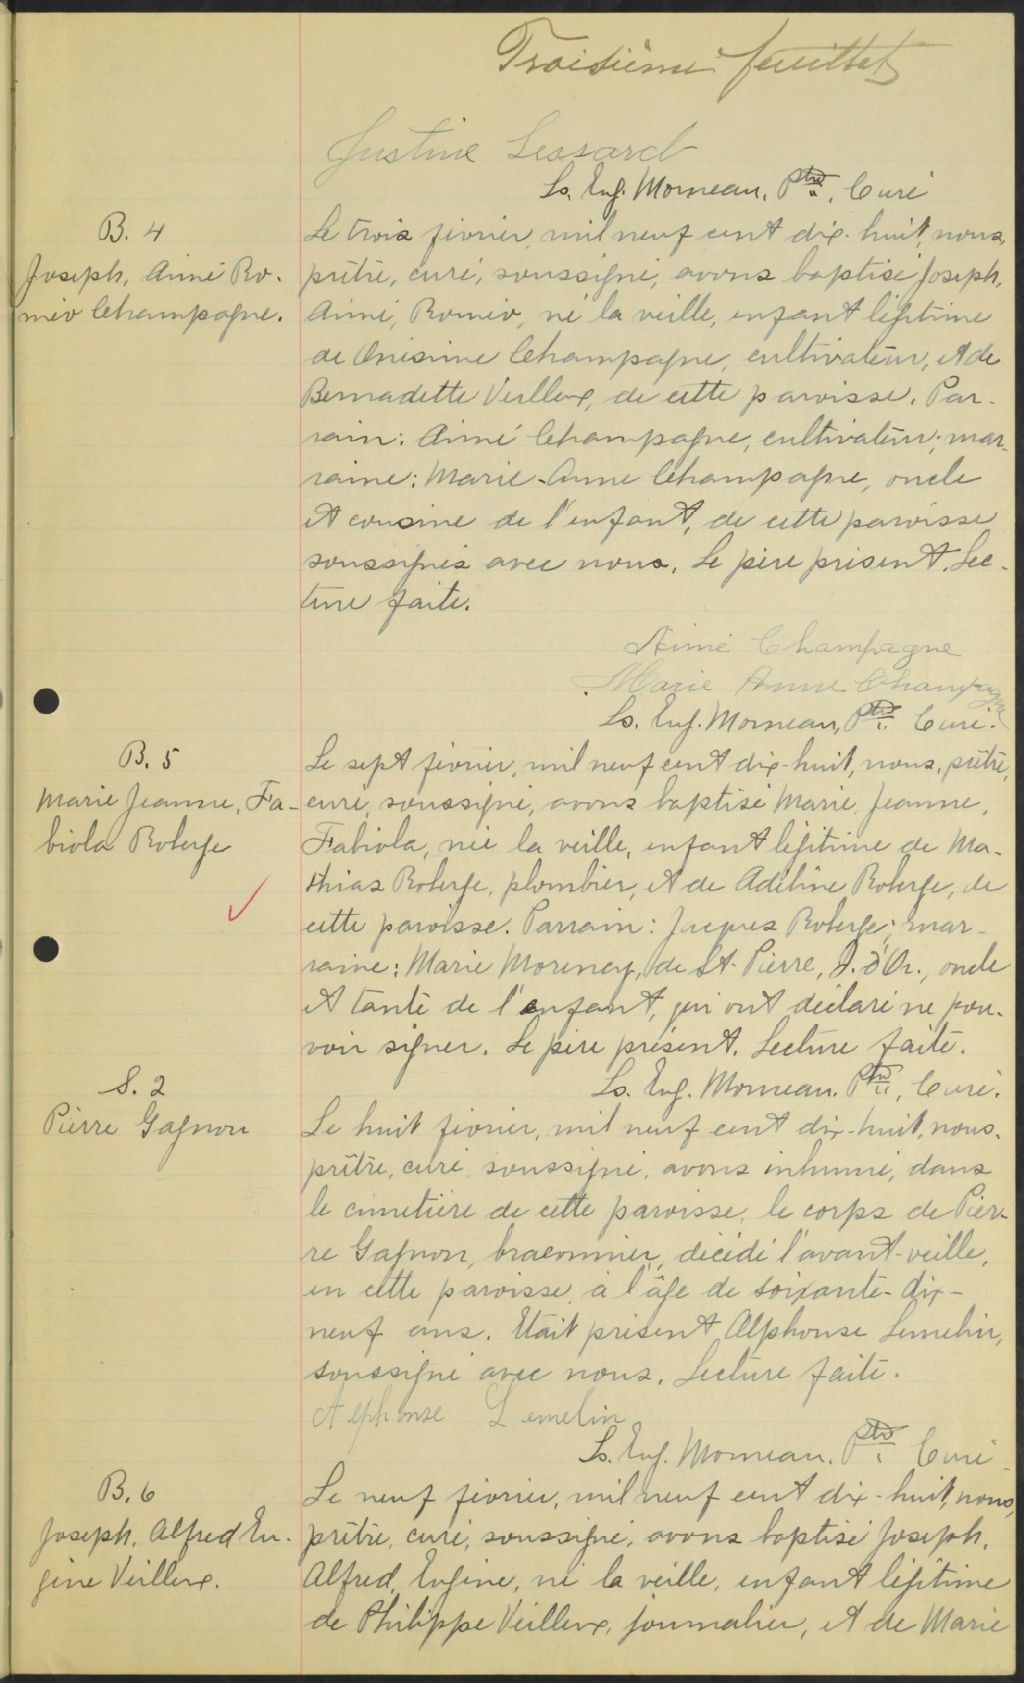 Troisième feuillet
Justine Lessard
Ls. Eug. Morneau, Ptre, Curé
B. 4
Joseph, Aimé Ro-
méo Champagne.
Le trois février, mil neuf cent dix-huit, nous,
prêtre, curé, soussigné, avons baptisé Joseph,
Aimé, Roméo, né la veille, enfant légitime
de Onésime Champagne, cultivateur, et de
Bernadette Veilleux, de cette paroisse. Par-
rain: Aimé Champagne, cultivateur; mar-
raine: Marie-Anne Champagne, oncle
et cousine de l'enfant, de cette paroisse
soussignés avec nous. Le père présent. Lec-
ture faite.
Aimé Champagne
Marie Anne Champagne
Ls. Eug. Morneau, Ptre Curé.
B. 5
Marie Jeanne, Fa-
biola Roberge
Le sept février, mil neuf cent dix-huit, nous, prêtre,
curé, soussigné, avons baptisé Marie, Jeanne,
Fabiola, née la veille, enfant légitime de Ma-
thias Roberge, plombier, et de Adéline Roberge, de
cette paroisse. Parrain: Jacques Roberge; mar-
raine: Marie Morency, de St-Pierre, I. d'Or., oncle
et tante de l'enfant, qui ont déclaré ne pou-
voir signer. Le père présent. Lecture faite.
Ls. Eug. Morneau. Ptre, Curé.
S. 2
Pierre Gagnon
Le huit février, mil neuf cent dix-huit, nous,
prêtre, curé soussigné, avons inhumé, dans
le cimetière de cette paroisse, le corps de Pier-
re Gagnon, braconnier, décédé l'avant-veille,
en cette paroisse, à l'âge de soixante-dix-
neuf ans. Etait présent Alphonse Lemelin,
soussigné avec nous. Lecture faite.
Alphonse Lemelin
Ls. Eug. Morneau. Ptre Curé
B. 6
Joseph, Alfred Eu-
gène Veilleux.
Le neuf février, mil neuf cent dix-huit, nous,
prêtre, curé, soussigné, avons baptisé Joseph,
Alfred, Eugène, né la veille, enfant légitime
de Philippe Veilleux, journalier, et de Marie